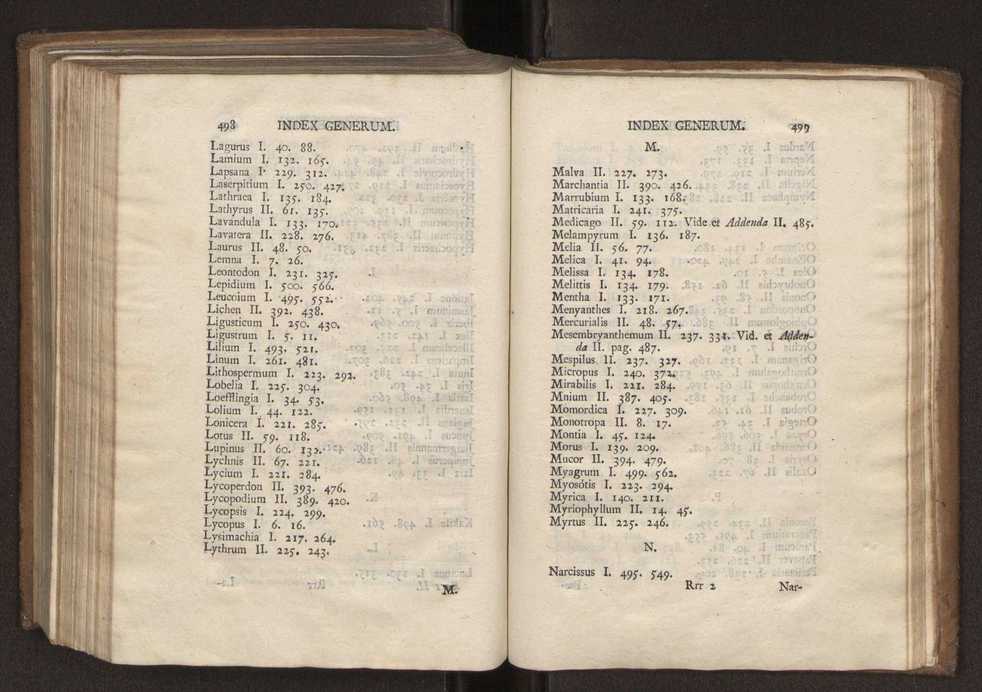 498 INDEX GENERUM.
Lagurus I. 40. 88.
Lamium I. 132. 165.
Lapsana I. 229. 312.
Laserpitium I. 250. 427.
Lathraea I. 135. 184.
Lathyrus II. 61. 135.
Lavandula I. 133. 170.
Lavatera II. 228. 276.
Laurus II. 48. 50.
Lemna I. 7. 26.
Leontodon I. 231. 325.
Lepidium I. 500. 566.
Leucoium I. 495. 552.
Lichen II. 392. 438.
Ligusticum I. 250. 430.
Ligustrum I. 5. 11.
Lilium I. 493. 521.
Linum I. 261. 481.
Lithospermum I. 223. 292.
Lobelia I. 225. 304.
Loefflingia I. 34. 53.
Lolium I. 44. 122.
Lonicera I. 221. 285.
Lotus II. 59. 118.
Lupinus II. 60. 132.
Lychnis II. 67. 221.
Lycium I. 221. 284.
Lycoperdon II. 393. 476.
Lycopodium II. 389. 420.
Lycopsis I. 224. 299.
Lycopus I. 6. 16.
Lysimachia I. 217. 264.
Lythrum II. 225. 243.
M.
INDEX GENERUM. 499
M.
Malva II. 227. 273.
Marchantia II. 390. 426.
Marrubium I. 133. 168.
Matricaria I. 241. 375.
Medicago II. 59. 112. Vide et Addenda II. 485.
Melampyrum I. 136. 187.
Melia II. 56. 77.
Melica I. 41. 94.
Melissa I. 134. 178.
Melittis I. 134. 179.
Mentha I. 133. 171.
Menyanthes I. 218. 267.
Mercurialis II. 48. 57.
Mesembryanthemum II. 237. 331. Vid. et Adden-
da II. pag. 487.
Mespilus II. 237. 327.
Micropus I. 240. 372.
Mirabilis I. 221. 284.
Mnium II. 387. 405.
Momordica I. 227. 309.
Monotropa II. 8. 17.
Montia I. 45. 124.
Morus I. 139. 209.
Mucor II. 394. 479.
Myagrum I. 499. 562.
Myosótis I. 223. 294.
Myrica I. 140. 211.
Myriophyllum II. 14. 45.
Myrtus II. 225. 246.
N.
Narcissus I. 495. 549.
Rrr 2 Nar-